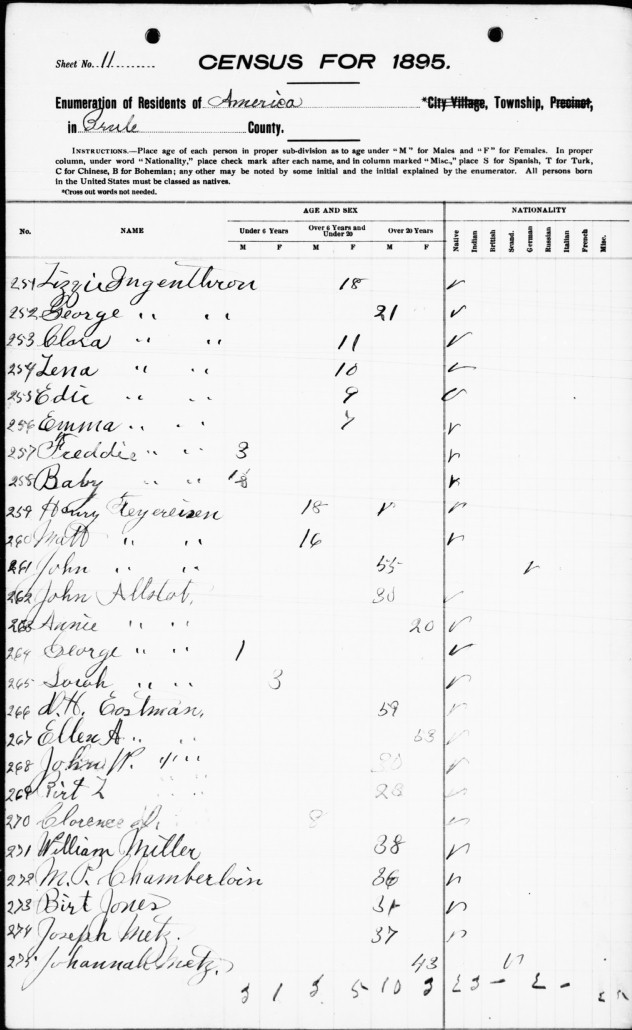 Sheet No. 11
CENSUS FOR 1895.
Enumeration of Residents of America *City Village, Township, Precinct,
in Brule County.
INSTRUCTIONS.—Place age of each person in proper sub-division as to age under "M" for Males and "F" for Females. In proper
column, under word "Nationality," place check mark after each name, and in column marked "Misc.," place S for Spanish, T for Turk,
C for Chinese, B for Bohemian; any other may be noted by some initial and the initial explained by the enumerator. All persons born
in the United States must be classed as natives.
*Cross out words not needed.
AGE AND SEX NATIONALITY
No. NAME Under 6 Years Over 6 Years and Under 20 Over 20 Years Native Indian British Scand. German Russian Italian French Misc.
M F M F M F
251 Lizzie Ingenthron 18 ✓
252 George " " 21 ✓
253 Clara " " 11 ✓
254 Lena " " 10 ✓
255 Edie " " 9 ✓
256 Emma " " 7 ✓
257 Freddie " " 3 ✓
258 Baby " " ✓
259 Henry Feyereisen 18 ✓ ✓
260 Matt " " 16 ✓
261 John " " 55 ✓
262 John Allstot. 30 ✓
263 Annie " " 20 ✓
264 George " " 1 ✓
265 Sarah " " 3 ✓
266 D.H. Eastman. 59 ✓
267 Ellen A " " 53 ✓
268 John W. " " 30 ✓
269 L 28 ✓
270 Clarence 8 ✓
271 William Miller 38 ✓
272 M.P. Chamberlain 36 ✓
273 Birt Jones 31 ✓
274 Joseph Metz. 37 ✓
275 Johannah Metz. 43 ✓
3 1 3 5 10 3 23 - 2 -